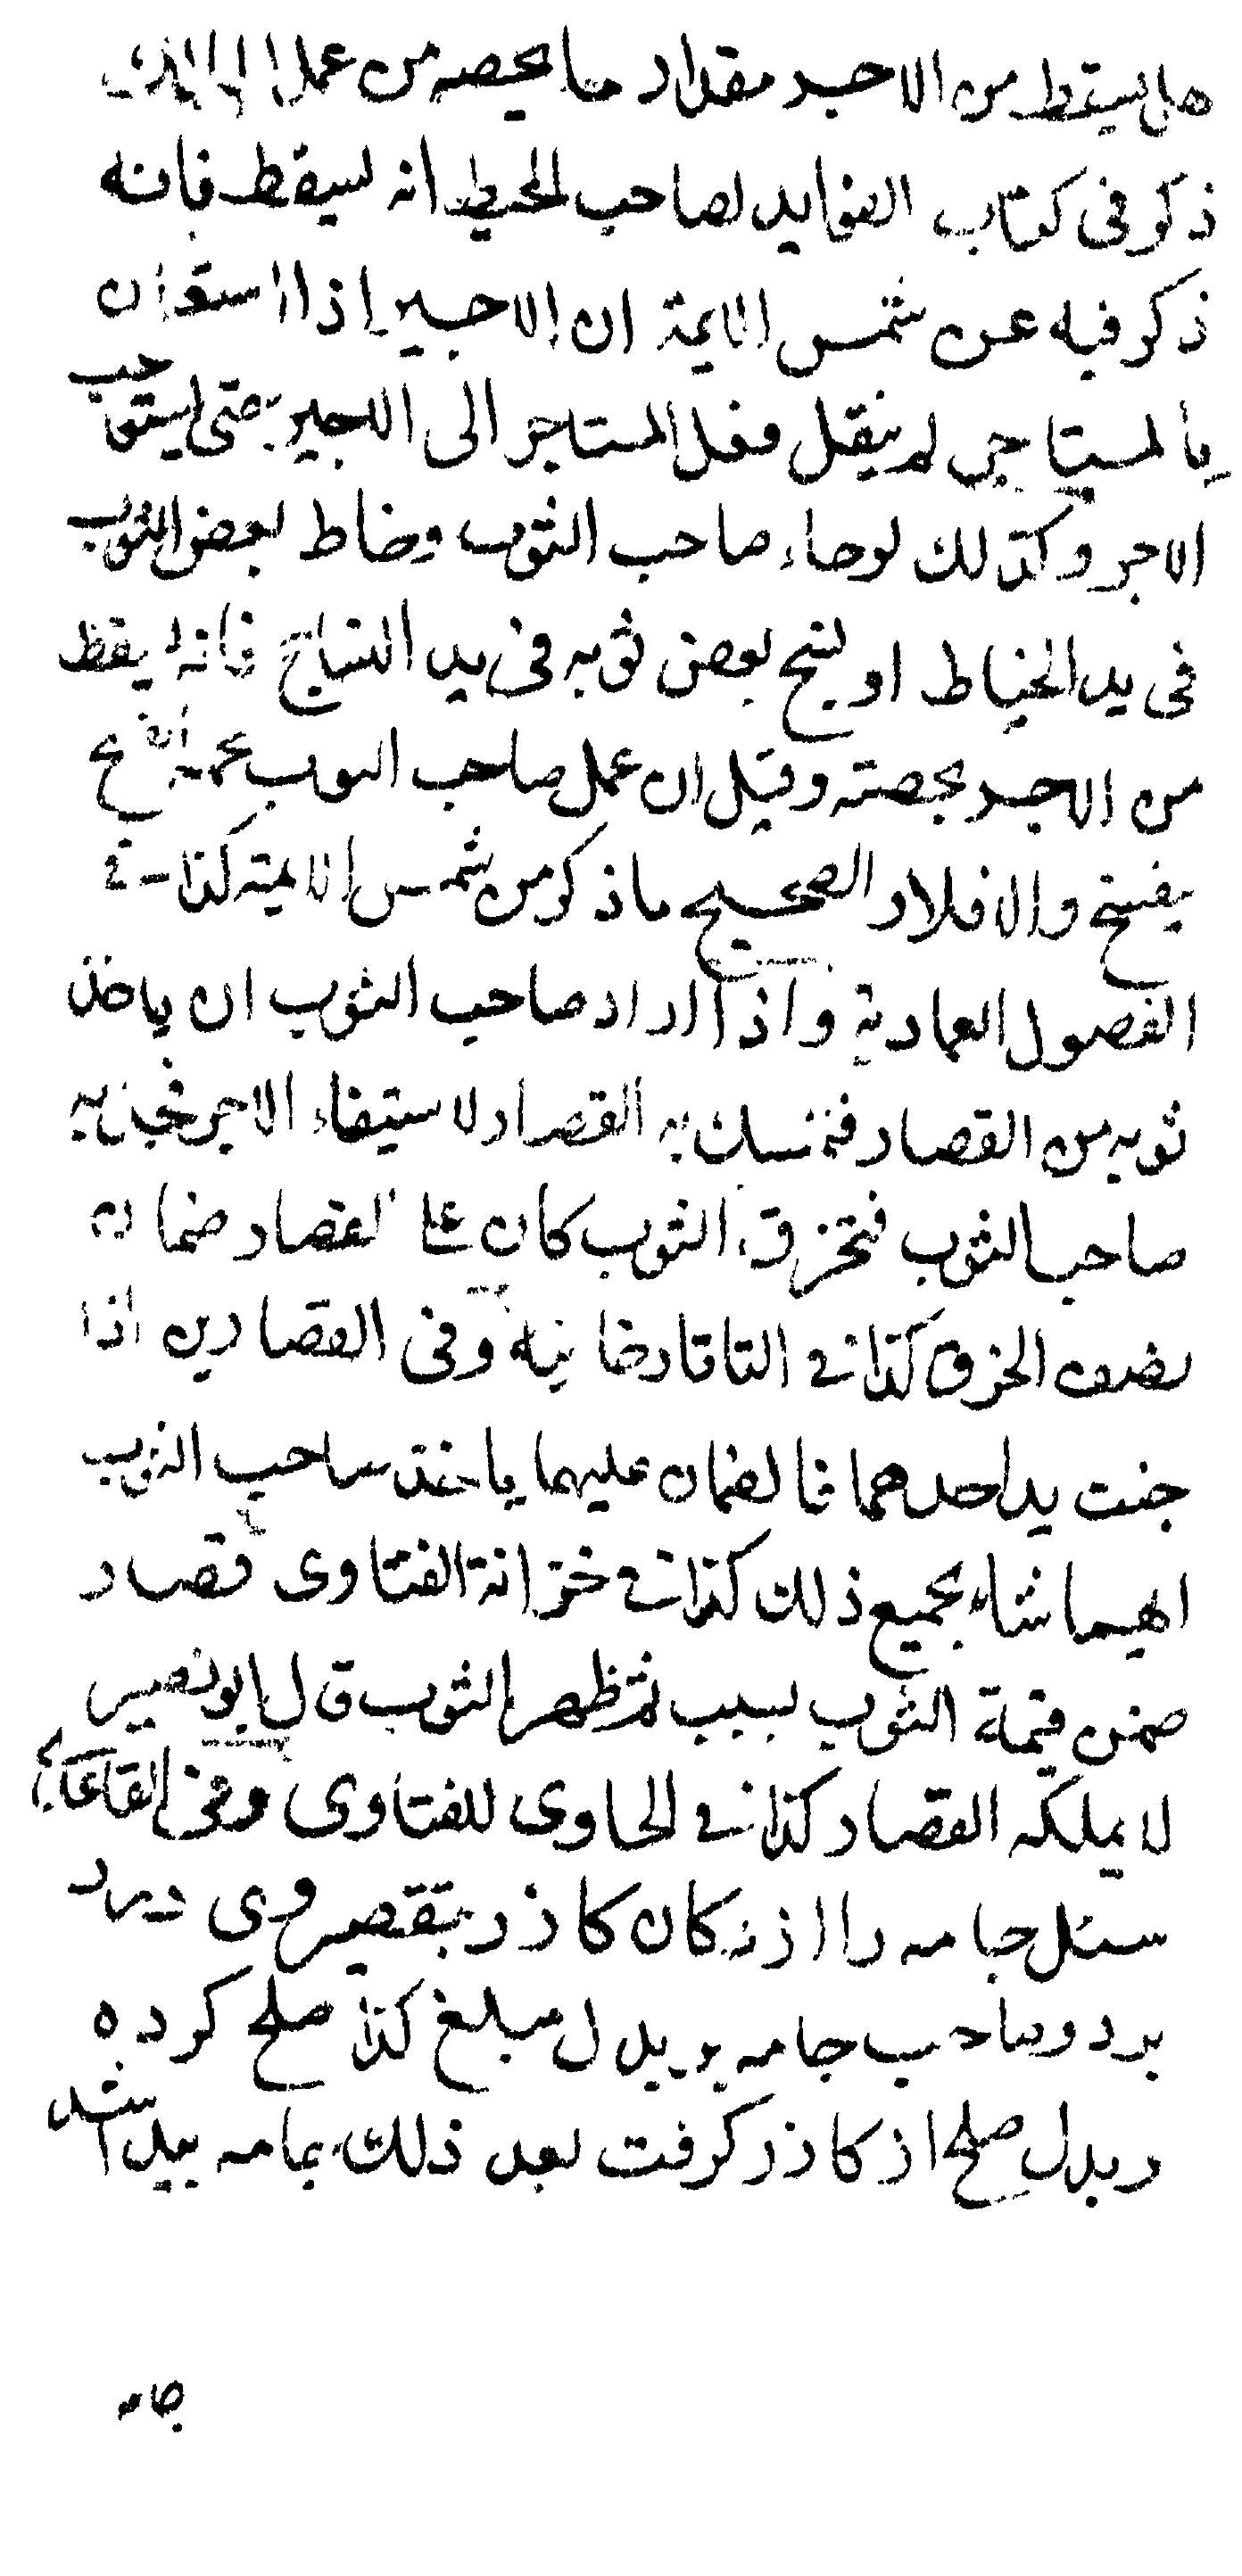 هل يسقط من الاجر مقدار ما يخصه من عمل المالك
ذكر فى كتاب الفوايد لصاحب المحيط انه يسقط فانه
ذكر فيه عن شمس الايمة ان الاجير اذا استعان
بالمستاجر لم ينقل فعل المستاجر الى الاجير حتى يستوجب
الاجر وكذلك لو جاء صاحب الثوب وخاط بعض الثوب
فى يد الخياط او نسج بعض ثوبه فى يد النساج فانه يسقط
من الاجر بحصته وقيل ان عمل صاحب الثوب
يفسخ والا فلا والصحيح ما ذكر من شمس الايمة كذا فى
الفصول العمادية واذا اراد صاحب الثوب ان ياخذ
ثوبه من القصار فتمسك به القصار لاستيفاء الاجر فجذبه
صاحب الثوب فتخرق الثوب كان على القصار ضمان
نصف الخرق كذا فى التاتارخانية وفى القصارين اذا
جنت يد احدهما فالضمان عليهما ياخذ صاحب الثوب
ايهما شاء بجميع ذلك كذا فى خزانة الفتاوى قصار
ضمن قيمة الثوب بسبب ثم ظهر الثوب قال ابو نصير
لا يملكه القصار كذا فى الحاوى للفتاوى وفى القاعدى
سئل جامه را از دكان كاذر بتقصير وى دزد
برد وصاحب جامه بر بدل مبلغ كذا صلح كرده
وبدل صلح از كاذر كرفت بعد ذلك جامه پيدا شد
جامه